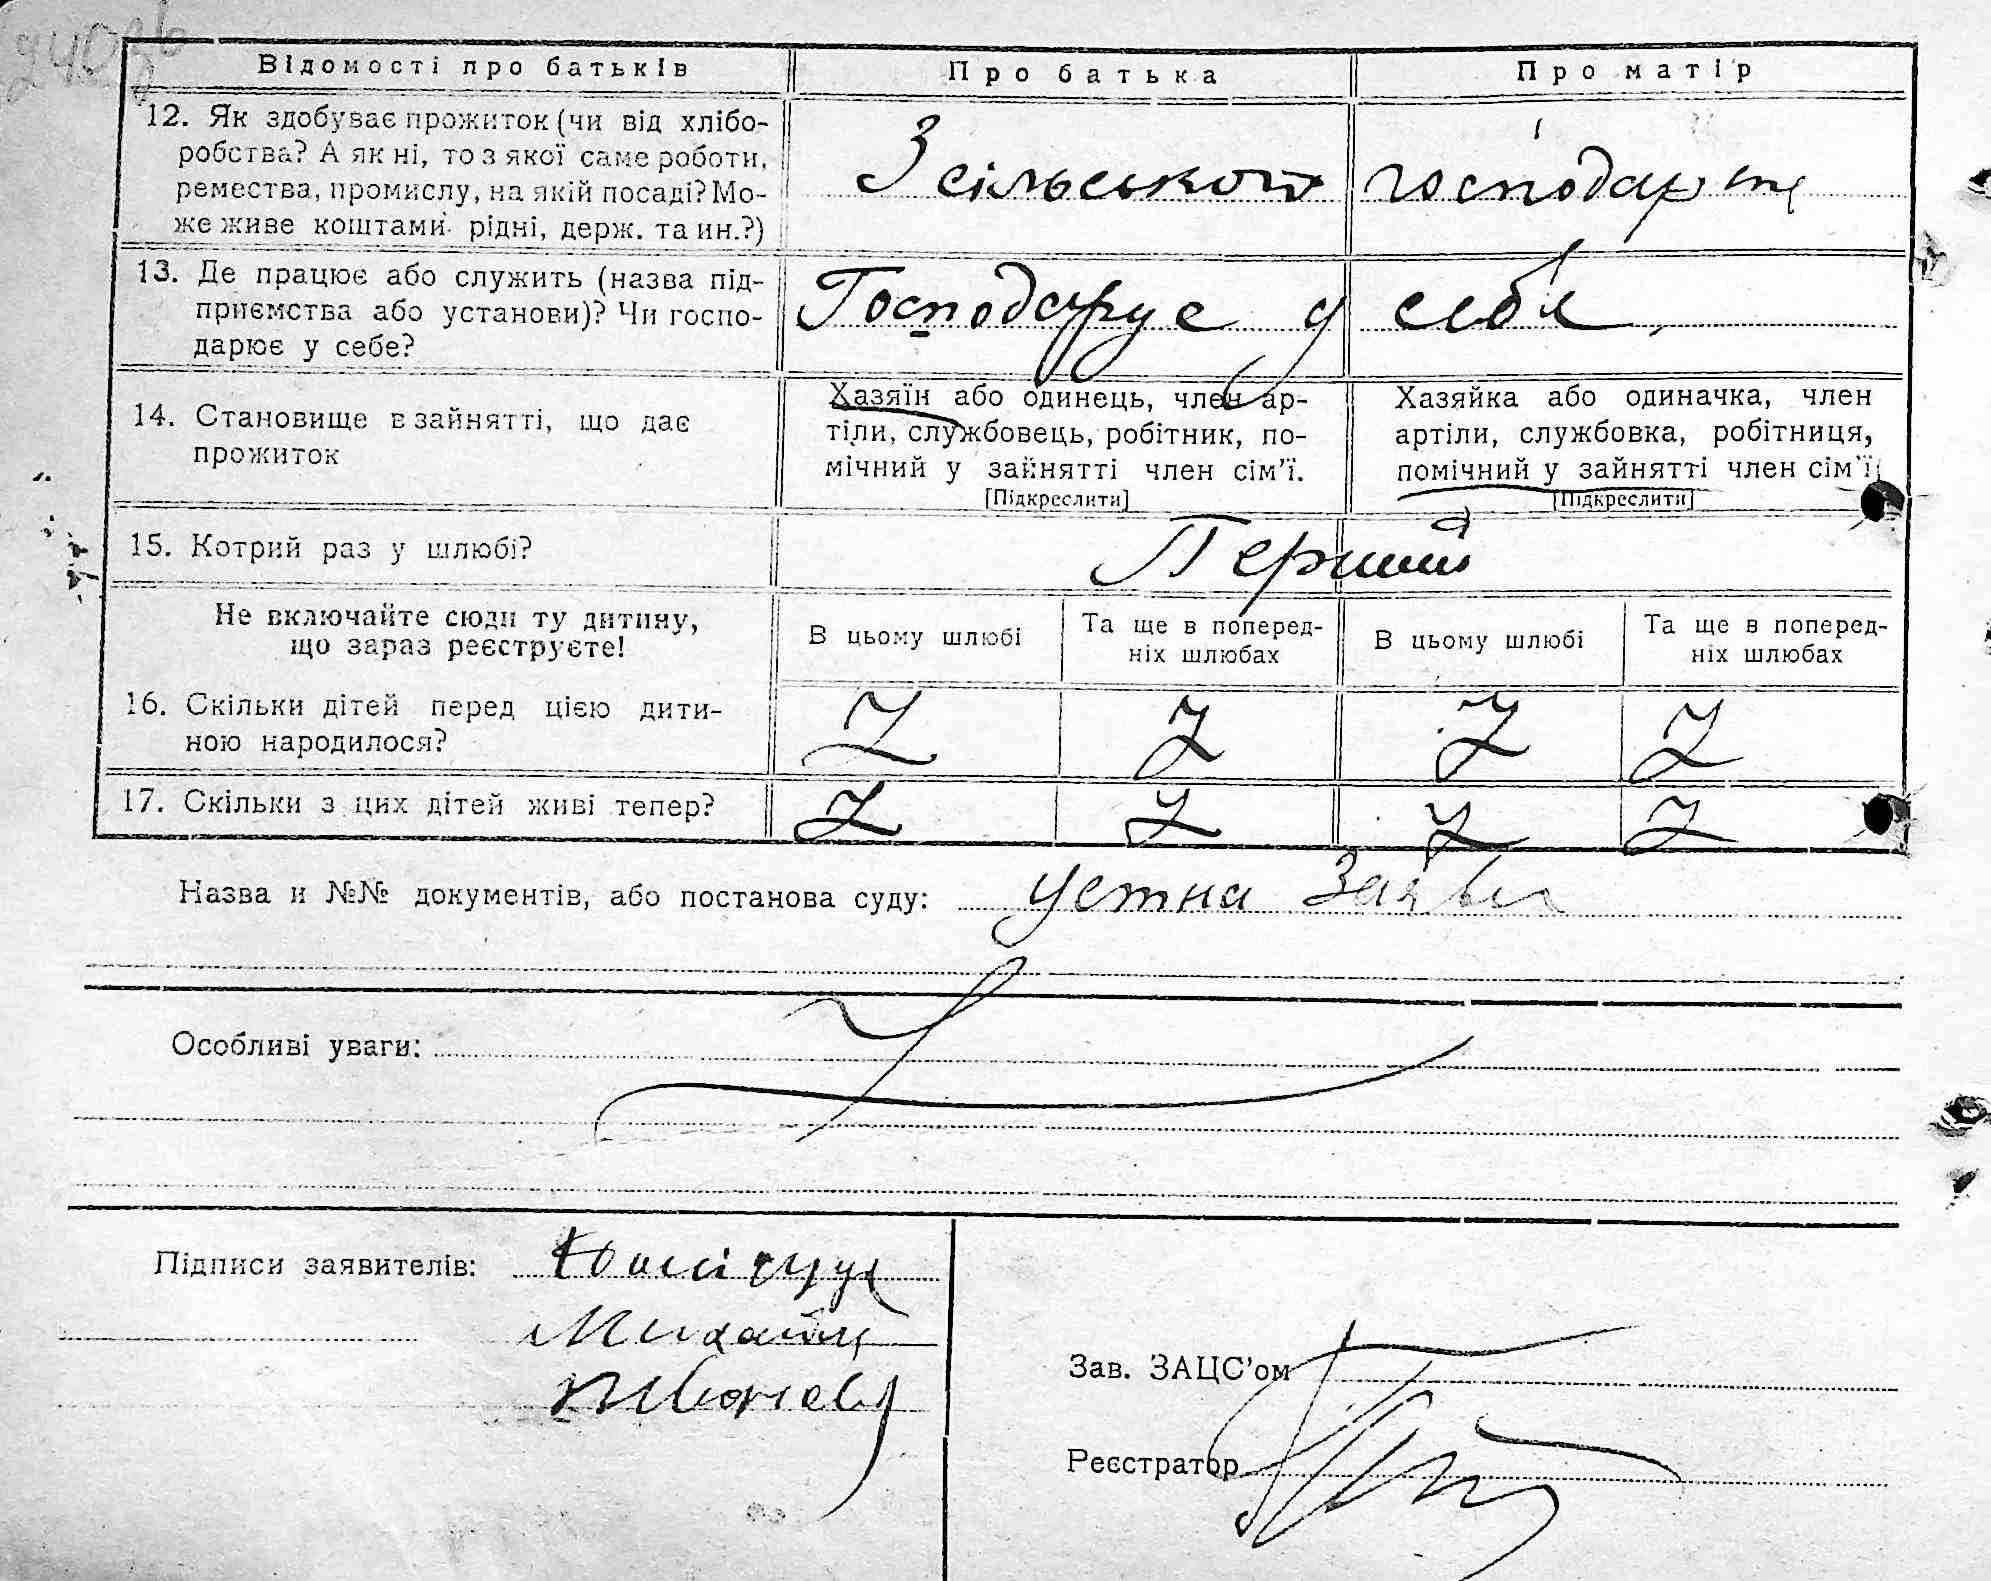 240
Відомості про батьків Про батька Про матір
12. Як здобуває прожиток (чи від хлібо-
робства? А як ні, то з якої саме роботи,
ремества, промислу, на якій посаді? Мо-
же живе коштами рідні, держ. та ин.?)
З сільського господарст
13. Де працює або служить (назва під-
приємства або установи)? Чи госпо-
дарює у себе?
Господарує у себе
14. Становище в зайнятті, що дає
прожиток
Хазяїн або одинець, член ар-
тіли, службовець, робітник, по-
мічний у зайнятті член сім'ї.
[Підкреслити]
Хазяйка або одиначка, член
артіли, службовка, робітниця,
помічний у зайнятті член сім'ї
[Підкреслити]
15. Котрий раз у шлюбі?
Перший
Не включайте сюди ту дитину,
що зараз реєструєте!
В цьому шлюбі
Та ще в поперед-
ніх шлюбах
В цьому шлюбі
Та ще в поперед-
ніх шлюбах
16. Скільки дітей перед цією дити-
ною народилося?
17. Скільки з цих дітей живі тепер?
Назва и №№ документів, або постанова суду: устна Заява
Особливі уваги:
Підписи заявителів:
Зав. ЗАЦС'ом
Реєстратор